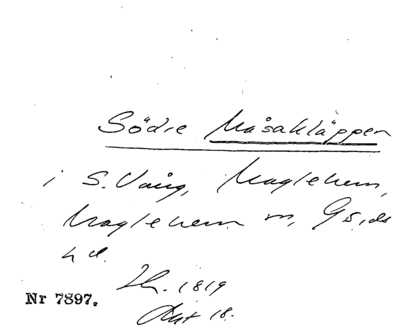 Södre Måsakläppen
i S. Vång, Maglehem,
Maglehem sn, Gärds
hd.
1819
Akt 18.
Nr 7897.